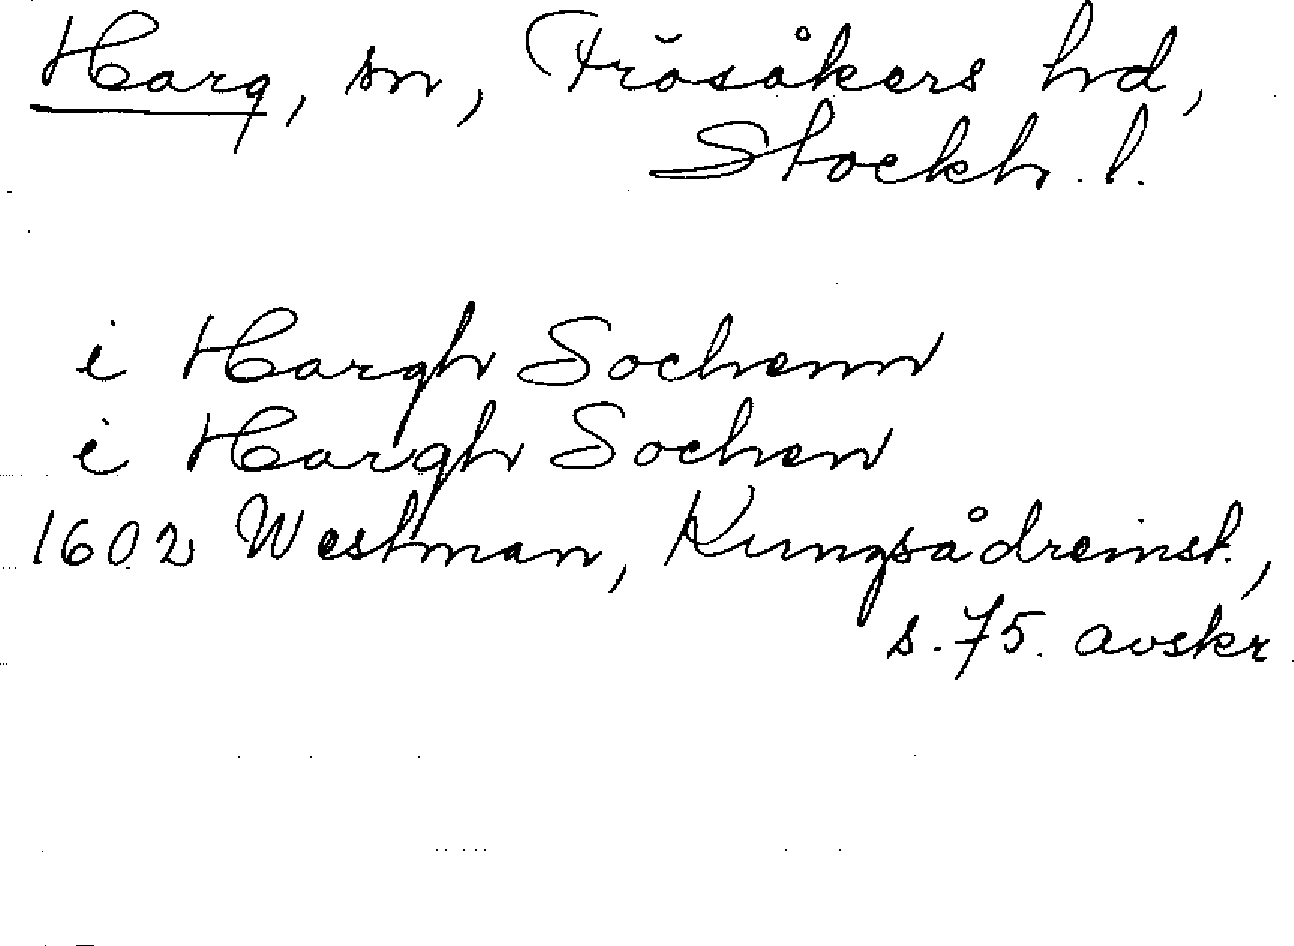 Harg, sn, Frösåkers hd,
Stockh. l.
i Hargh Sochenn
i Hargh Sochen
1602 Westman, Kungsådreinst.,
s. 75. avskr